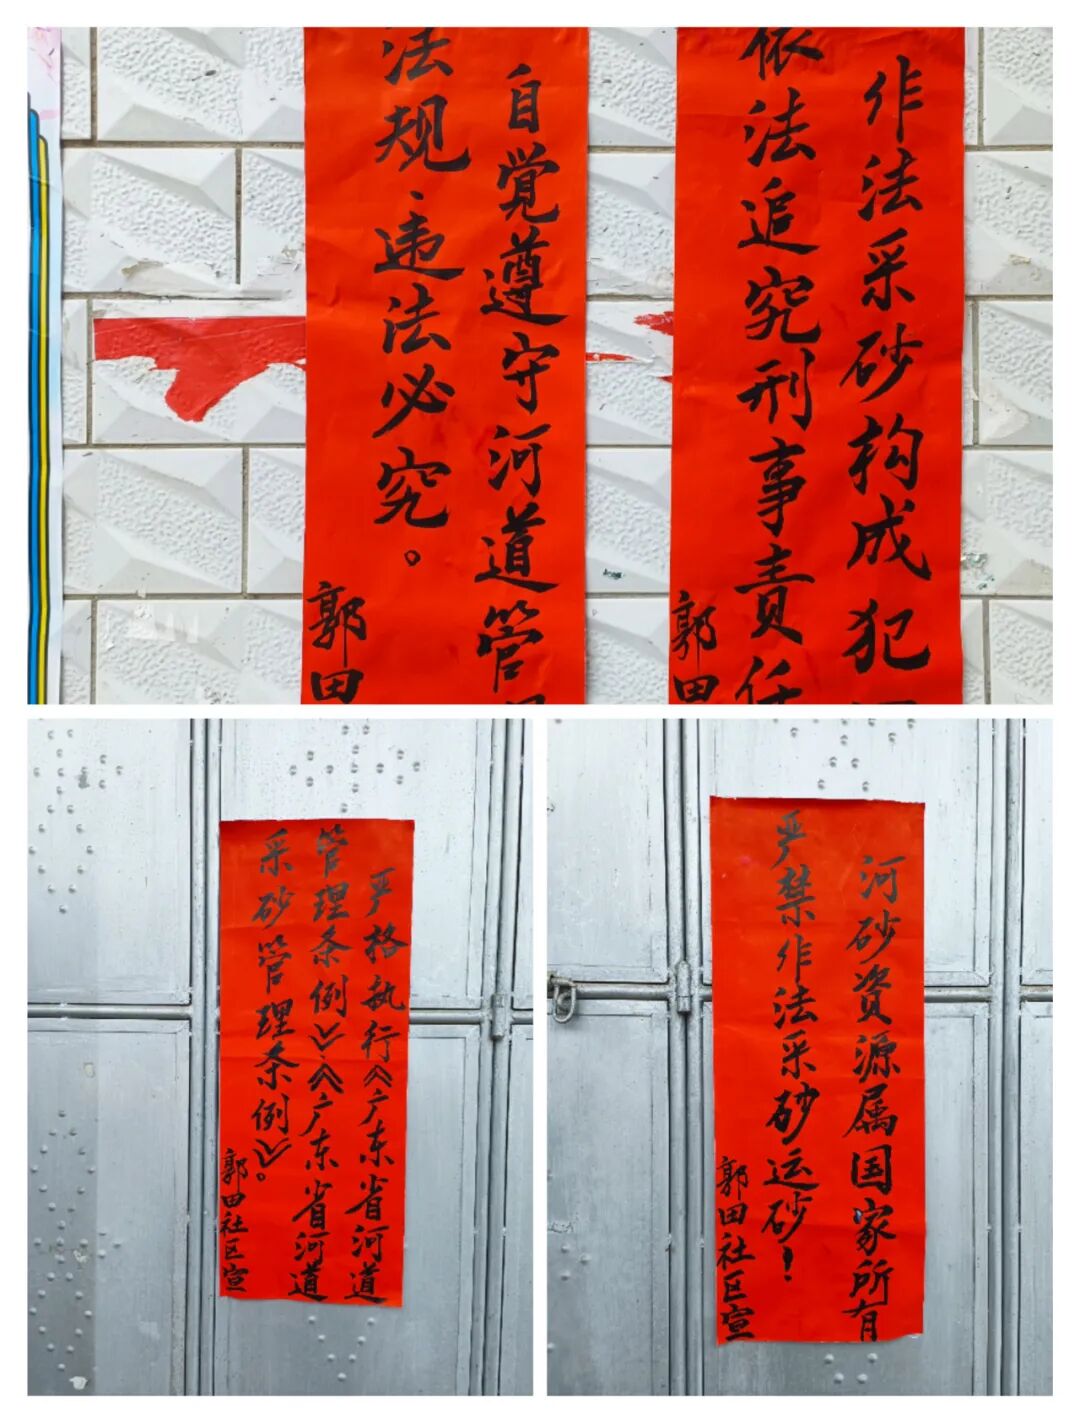 自觉遵守河道管
法规、违法必究。
郭田
非法采砂构成犯
依法追究刑事责任
郭田
严格执行《广东省河道
管理条例》、《广东省河道
采砂管理条例》。
郭田社区宣
河砂资源属国家所有
严禁非法采砂运砂！
郭田社区宣